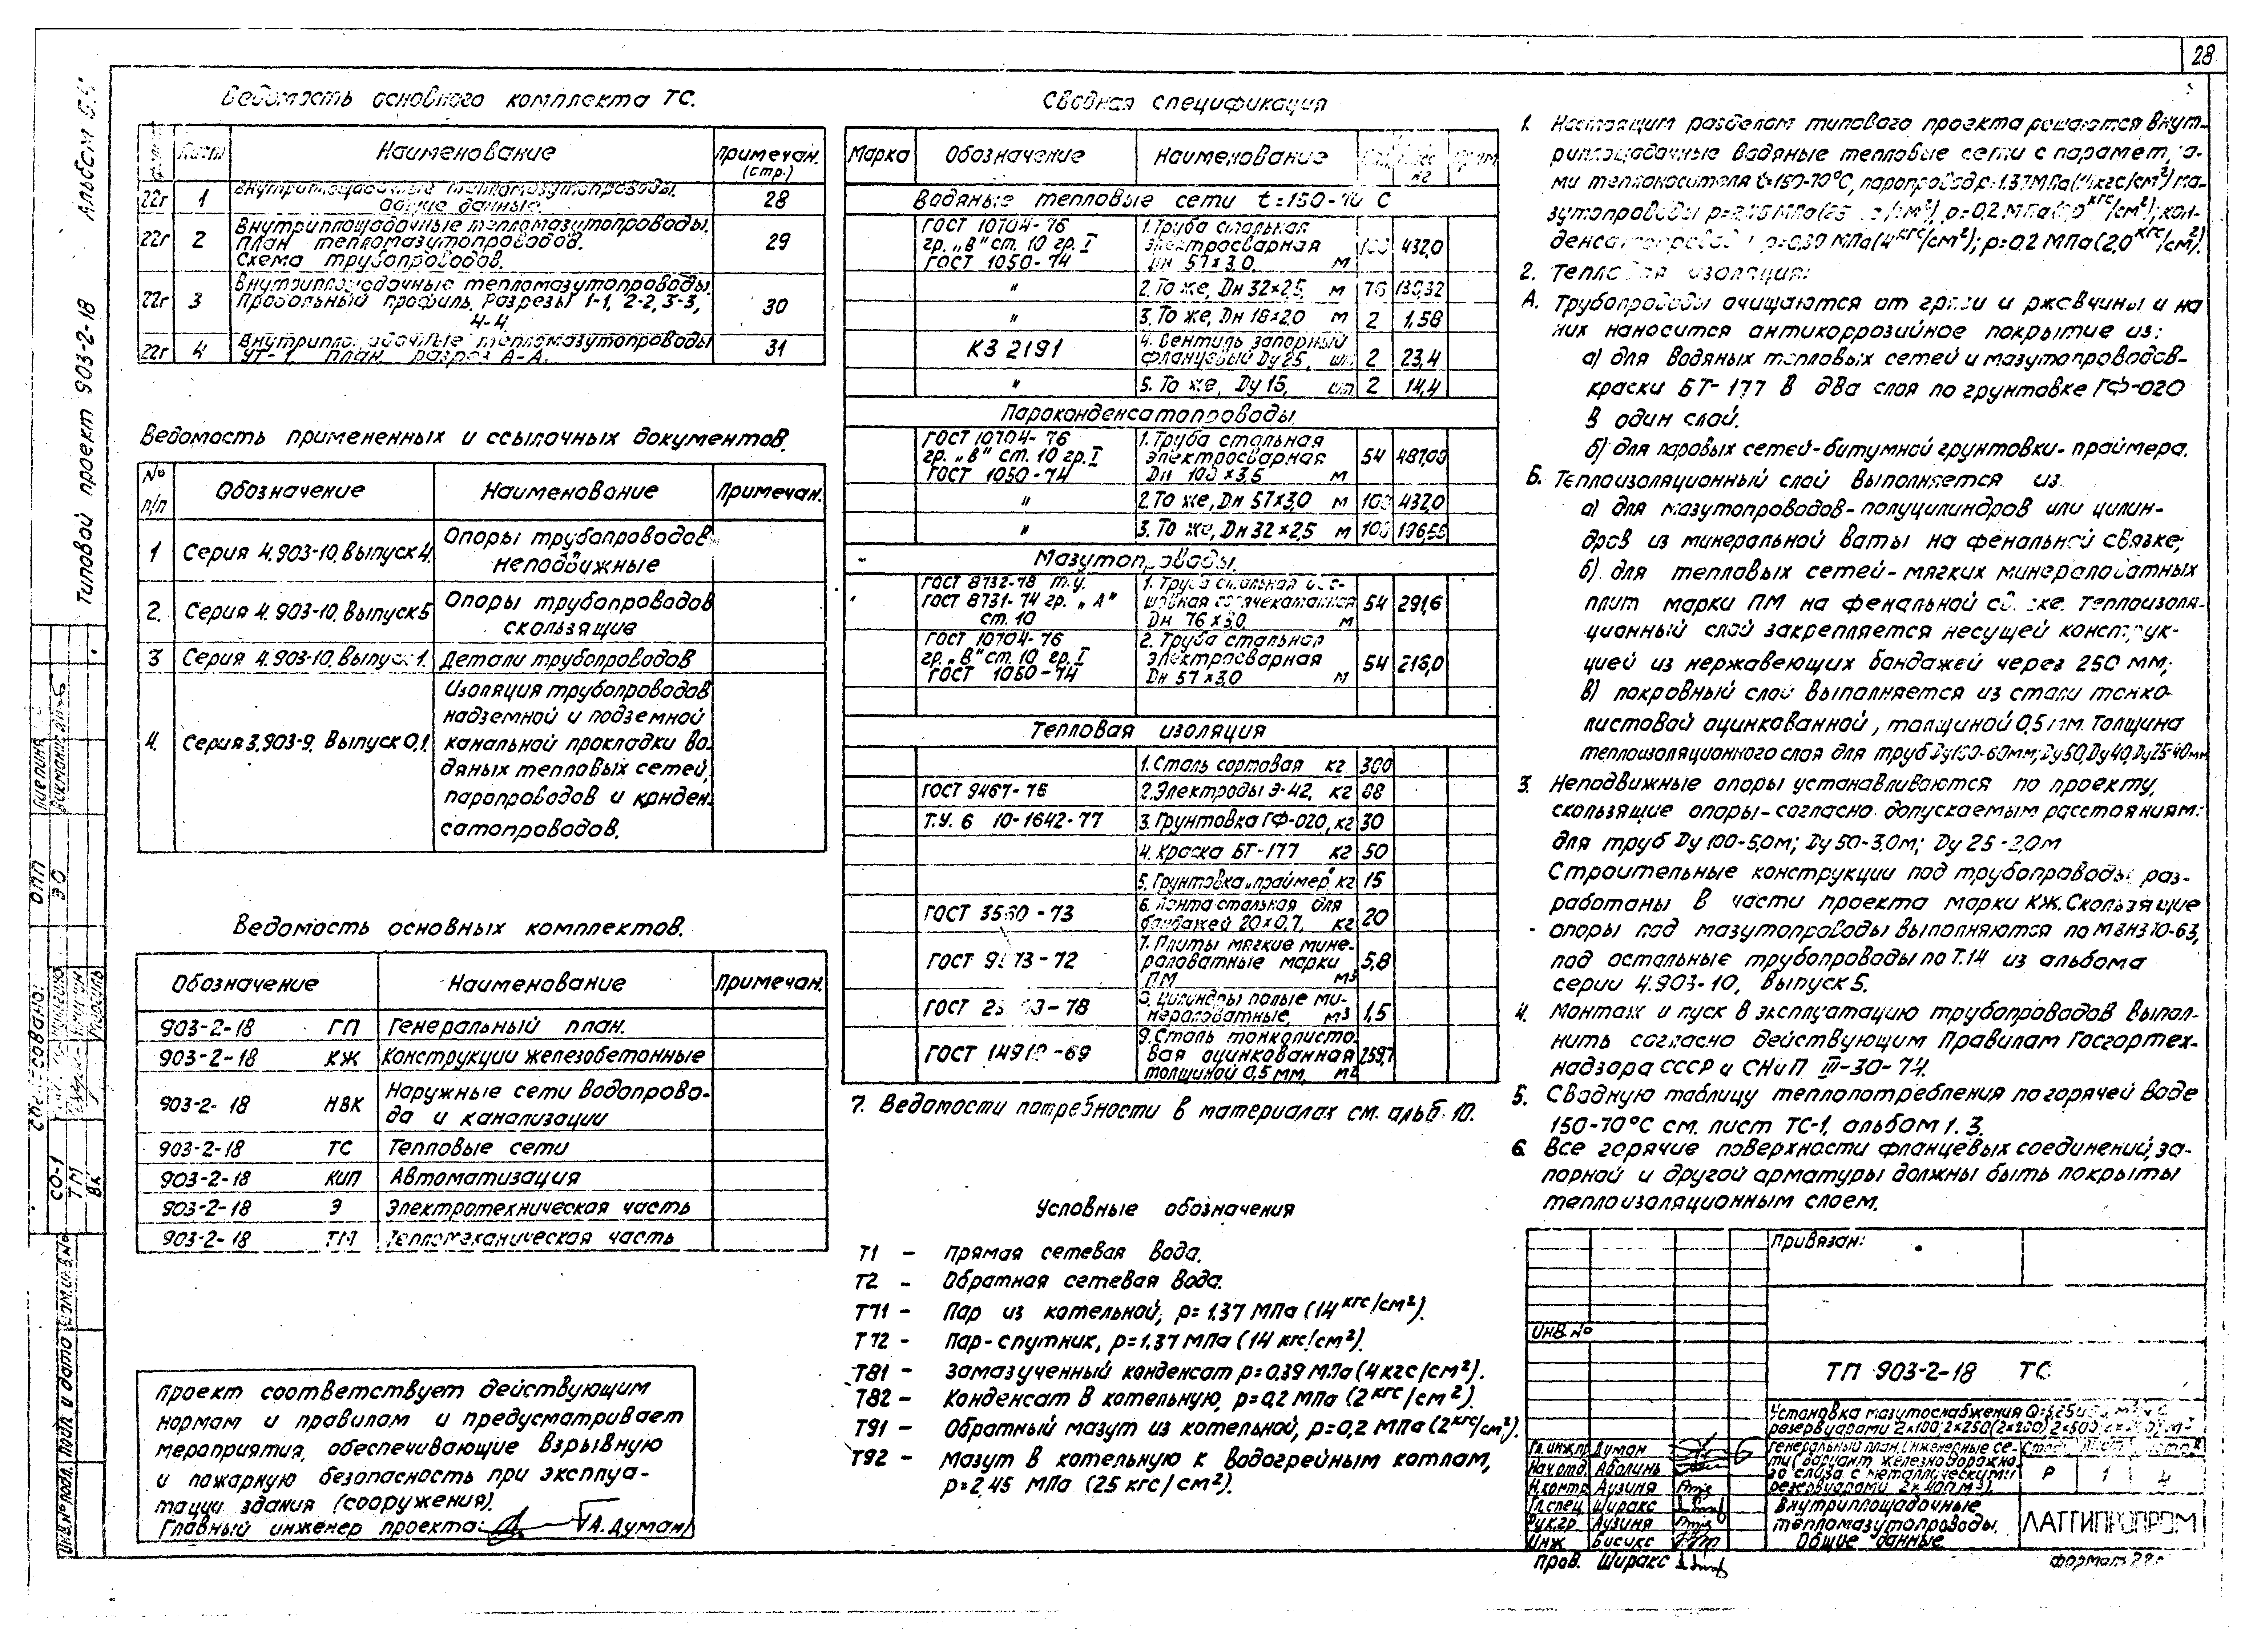 28
Альбом
Типовой проект 903-2-18
Ведомость основного комплекта ТС.
Лист Наименование Примечан. (стр.)
22г 1 Внутриплощадочные тепломазутопроводы.
Общие данные. 28
22г 2 Внутриплощадочные тепломазутопроводы.
План тепломазутопроводов. 29
Схема трубопроводов.
22г 3 Внутриплощадочные тепломазутопроводы.
Продольный профиль. Разрезы 1-1, 2-2, 3-3, 30
4-4.
22г 4 Внутриплощадочные тепломазутопроводы
УТ-1, план, разрез А-А. 31
Ведомость примененных и ссылочных документов.
№ п/п Обозначение Наименование Примечан.
1 Серия 4.903-10. Выпуск 4. Опоры трубопроводов
неподвижные
2. Серия 4.903-10. Выпуск 5 Опоры трубопроводов
скользящие
3 Серия 4.903-10. Выпуск 1. Детали трубопроводов
4. Серия 3.903-9. Выпуск 0.1. Изоляция трубопроводов
надземной и подземной
канальной прокладки во-
дяных тепловых сетей,
паропроводов и конден-
сатопроводов.
Ведомость основных комплектов.
Обозначение Наименование Примечан.
903-2-18 ГП Генеральный план.
903-2-18 КЖ Конструкции железобетонные
903-2-18 НВК Наружные сети водопрово-
да и канализации
903-2-18 ТС Тепловые сети
903-2-18 КИП Автоматизация
903-2-18 Э Электротехническая часть
903-2-18 ТМ Тепломеханическая часть
Проект соответствует действующим
нормам и правилам и предусматривает
мероприятия, обеспечивающие взрывную
и пожарную безопасность при эксплуа-
тации здания (сооружения).
Главный инженер проекта: А. Думан
Сводная спецификация
Марка Обозначение Наименование кг
Водяные тепловые сети t=150-70 С
ГОСТ 10704-76 1. Труба стальная
гр. „В" ст. 10 гр. I электросварная 432,0
ГОСТ 1050-74 Дн 57×3,0 м
" 2. То же, Дн 32×2,5 м 76
" 3. То же, Дн 18×2,0 м 2 1,58
КЗ 2191 4. Вентиль запорный
фланцевый Ду 25, шт. 2 23,4
" 5. То же, Ду 15, шт. 2 14,4
Пароконденсатопроводы.
ГОСТ 10704-76 1. Труба стальная
гр. „В" ст. 10 гр. I электросварная 54
ГОСТ 1050-74 Дн 108×3,5 м
" 2. То же, Дн 57×3,0 м 108 432,0
" 3. То же, Дн 32×2,5 м 108
Мазутопроводы.
ГОСТ 8732-78 т.у. 1. Труба стальная бес-
ГОСТ 8731-74 гр. „А" шовная горячекатанная 54 291,6
ст. 10 Дн 76×3,0 м
ГОСТ 10704-76 2. Труба стальная
гр. „В" ст. 10 гр. I электросварная 54 216,0
ГОСТ 1050-74 Дн 57×3,0 м
Тепловая изоляция
1. Сталь сортовая кг 300
ГОСТ 9467-75 2. Электроды Э-42, кг
Т.У. 6 10-1642-77 3. Грунтовка ГФ-020, кг 30
4. Краска БТ-177 кг 50
5. Грунтовка „праймер" кг 15
ГОСТ 3560-73 6. Лента стальная для
бандажей 20×0,7, кг 20
ГОСТ 9573-72 7. Плиты мягкие мине-
раловатные марки 5,8
ПМ м³
8. Цилиндры полые ми-
нераловатные, м³ 1,5
ГОСТ 14918-69 9. Сталь тонколисто-
вая оцинкованная 259,7
толщиной 0,5 мм, м²
7. Ведомости потребности в материалах см. альб. 10.
Условные обозначения
Т1 – Прямая сетевая вода.
Т2 – Обратная сетевая вода.
Т71 – Пар из котельной, р=1.37 МПа (14 кгс/см²).
Т72 – Пар-спутник, р=1.37 МПа (14 кгс/см²).
Т81 – Замазученный конденсат р=0,39 МПа (4 кгс/см²).
Т82 – Конденсат в котельную, р=0,2 МПа (2 кгс/см²).
Т91 – Обратный мазут из котельной, р=0,2 МПа (2 кгс/см²).
Т92 – Мазут в котельную к водогрейным котлам,
р=2,45 МПа (25 кгс/см²).
1. Настоящим разделом типового проекта решаются внут-
риплощадочные водяные тепловые сети с параметра-
ми теплоносителя t=150-70°С, паропровод р=1.37МПа (14кгс/см²) ма-
зутопроводы р=2,45 МПа (25 кгс/см²), р=0,2 МПа (2,0 кгс/см²); кон-
денсатопроводы р=0,39 МПа (4 кгс/см²); р=0,2 МПа (2,0 кгс/см²).
2. Тепловая изоляция:
А. Трубопроводы очищаются от грязи и ржавчины и на
них наносится антикоррозийное покрытие из:
а) для водяных тепловых сетей и мазутопроводов-
краски БТ-177 в два слоя по грунтовке ГФ-020
в один слой.
б) для паровых сетей-битумной грунтовки-праймера.
Б. Теплоизоляционный слой выполняется из
а) для мазутопроводов-полуцилиндров или цилин-
дров из минеральной ваты на фенальной связке;
б) для тепловых сетей-мягких минераловатных
плит марки ПМ на фенальной связке. Теплоизоля-
ционный слой закрепляется несущей конструк-
цией из нержавеющих бандажей через 250 мм;
в) покровный слой выполняется из стали тонко-
листовой оцинкованной, толщиной 0,5 мм. Толщина
теплоизоляционного слоя для труб Ду100-60мм; Ду50, Ду40, Ду25-40мм
3. Неподвижные опоры устанавливаются по проекту,
скользящие опоры-согласно допускаемым расстояниям:
для труб Ду 100-5,0м; Ду 50-3,0м; Ду 25-2,0м
Строительные конструкции под трубопроводы раз-
работаны в части проекта марки КЖ. Скользящие
опоры под мазутопроводы выполняются по
под остальные трубопроводы по Т.14 из альбома
серии 4.903-10, Выпуск 5.
4. Монтаж и пуск в эксплуатацию трубопроводов выпол-
нить согласно действующим Правилам Госгортех-
надзора СССР и СНиП III-30-74.
5. Сводную таблицу теплопотребления по горячей воде
150-70°С см. лист ТС-1, альбом 1.3.
6. Все горячие поверхности фланцевых соединений, за-
порной и другой арматуры должны быть покрыты
теплоизоляционным слоем.
Привязан:
Инв. №
ТП 903-2-18 ТС
Установка мазутоснабжения
резервуарами
Генеральный план. Инженерные се-
ти (вариант железнодорожно-
го слива с металлическими
резервуарами 2×400 м³).
Р 1 4
Внутриплощадочные
тепломазутопроводы.
Общие данные
ЛАТГИПРОПРОМ
Гл. инж. пр. Думан
Нач. отд. Аболинь
Н. контр. Аузиня
Гл. спец. Ширакс
Рук. гр. Аузиня
Инж. Бисикс
Пров. Ширакс
Формат 22г